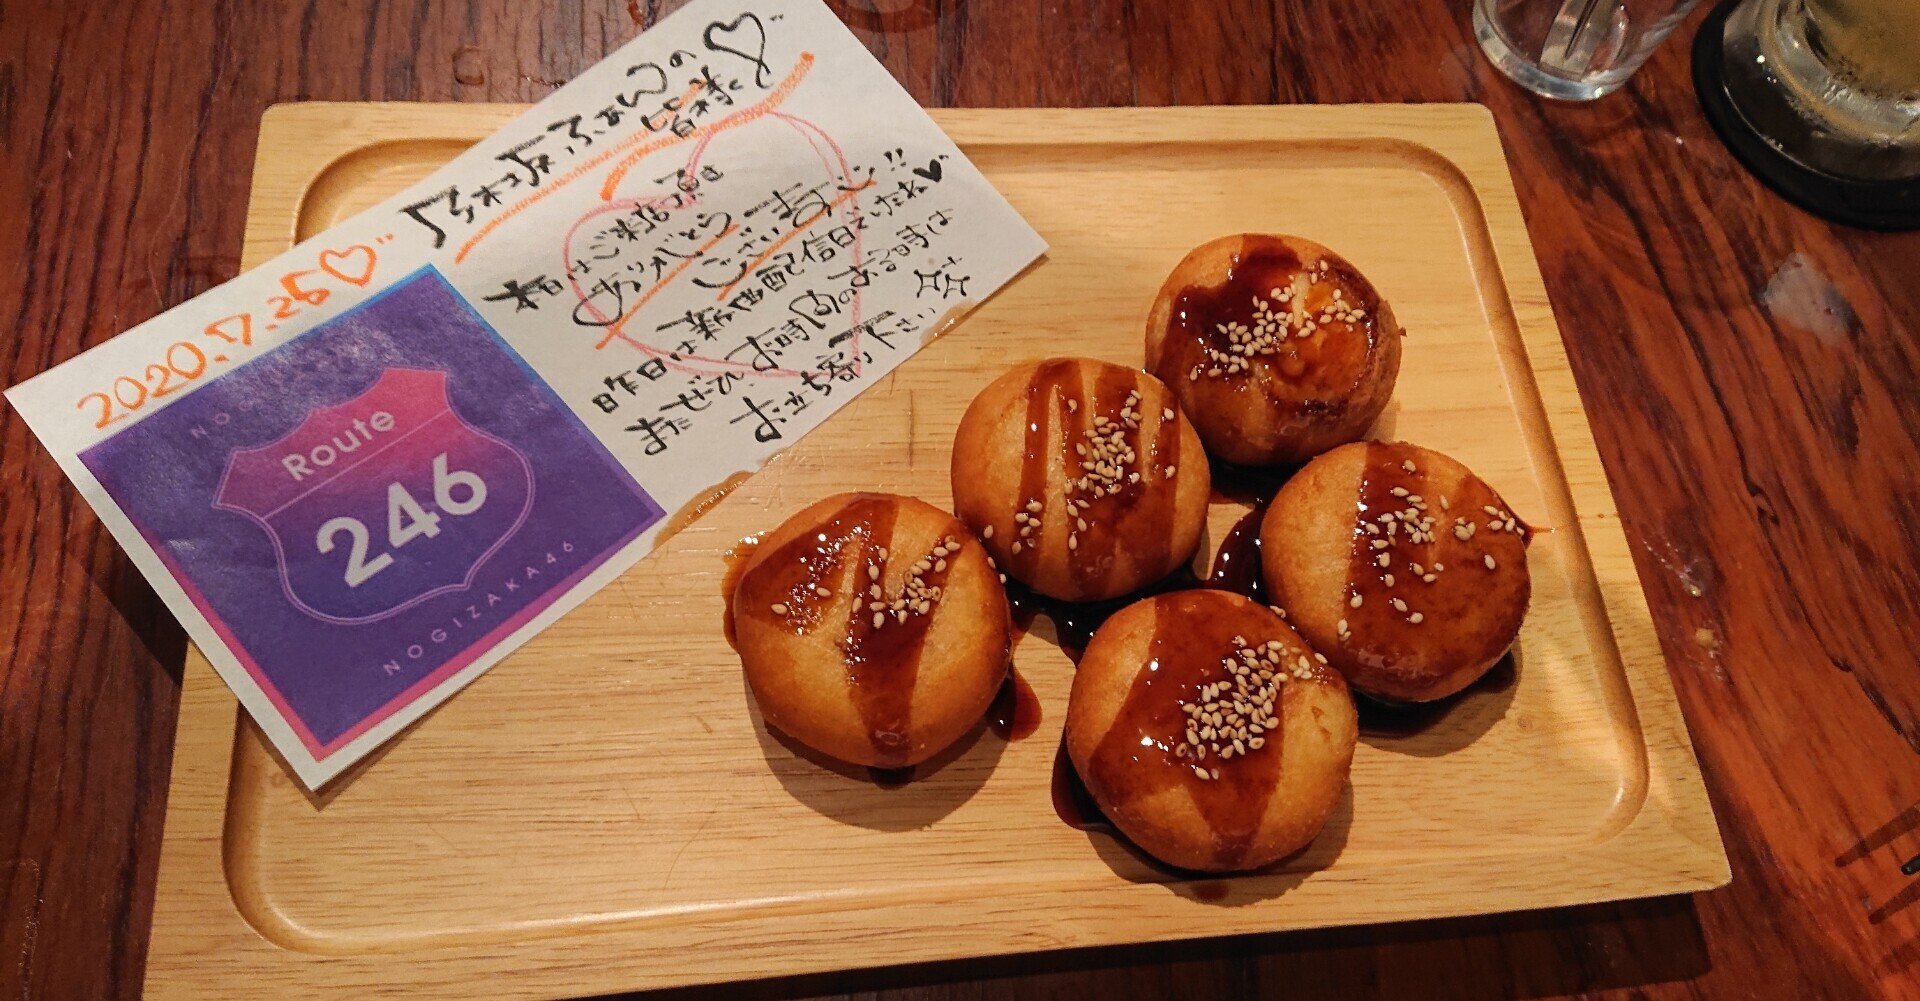 2020.7.25♡
NOG
Route
246
NOGIZAKA46
乃木坂ふぁんの
皆様へ♡
本日はご来店頂き
ありがとう
ございます!!
昨日は新曲配信日でしたね♥
またぜひ、お時間のある時は
お立ち寄り下さい☆☆